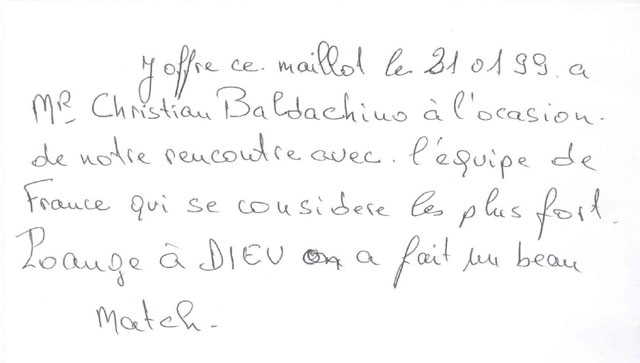 J offre ce. maillot le 21 01 99. a
MR Christian Baldachino à l'ocasion.
de notre rencontre avec. l'équipe de
France qui se considere les plus fort.
Loange à DIEU on a fait un beau
Match.